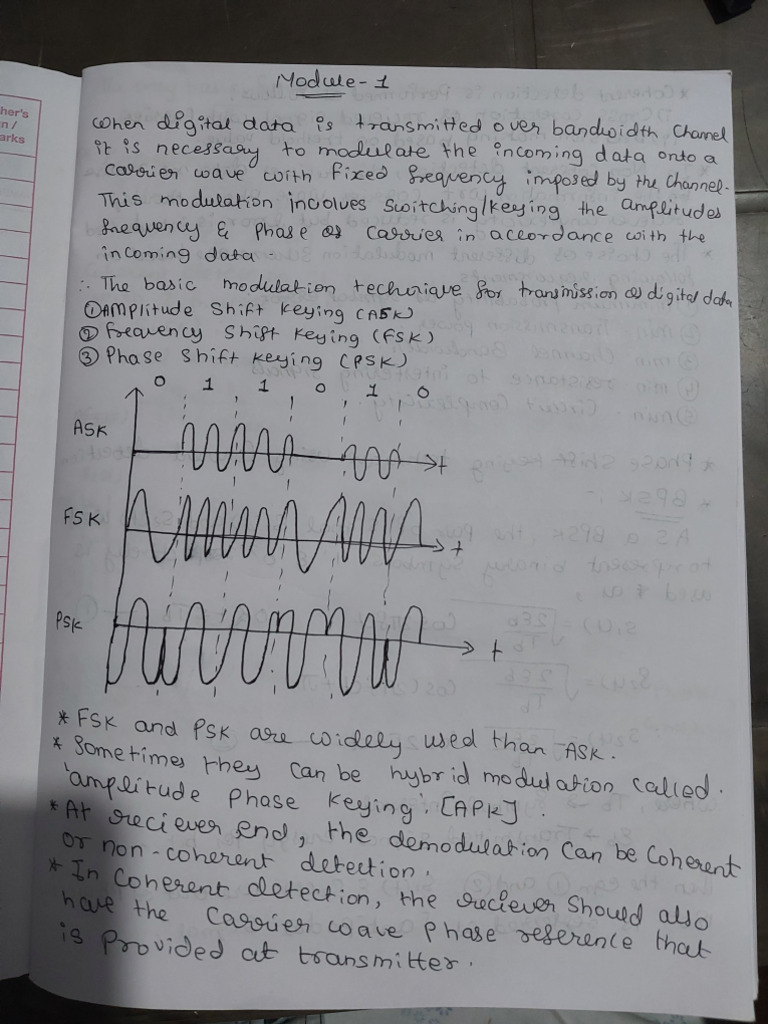 her's
n /
arks
Module-1
When digital data is transmitted over bandwidth Channel
it is necessary to modulate the incoming data onto a
carrier wave with fixed frequency imposed by the channel.
This modulation involves switching/keying the amplitudes
frequency & phase of carrier in accordance with the
incoming data -
∴ The basic modulation technique for transmission of digital data
① AMplitude Shift keying (ASK)
② frequency Shift keying (FSK)
③ Phase Shift keying (PSK)
0 1 1 0 1 0
ASK
t
FSK
t
PSK
t
* FSK and PSK are widely used than ASK.
* Sometimes they can be hybrid modulation called.
'amplitude phase keying'. [APK].
* At reciever end, the demodulation can be coherent
or non-coherent detection.
* In coherent detection, the reciever should also
have the carrier wave phase reference that
is provided at transmitter.